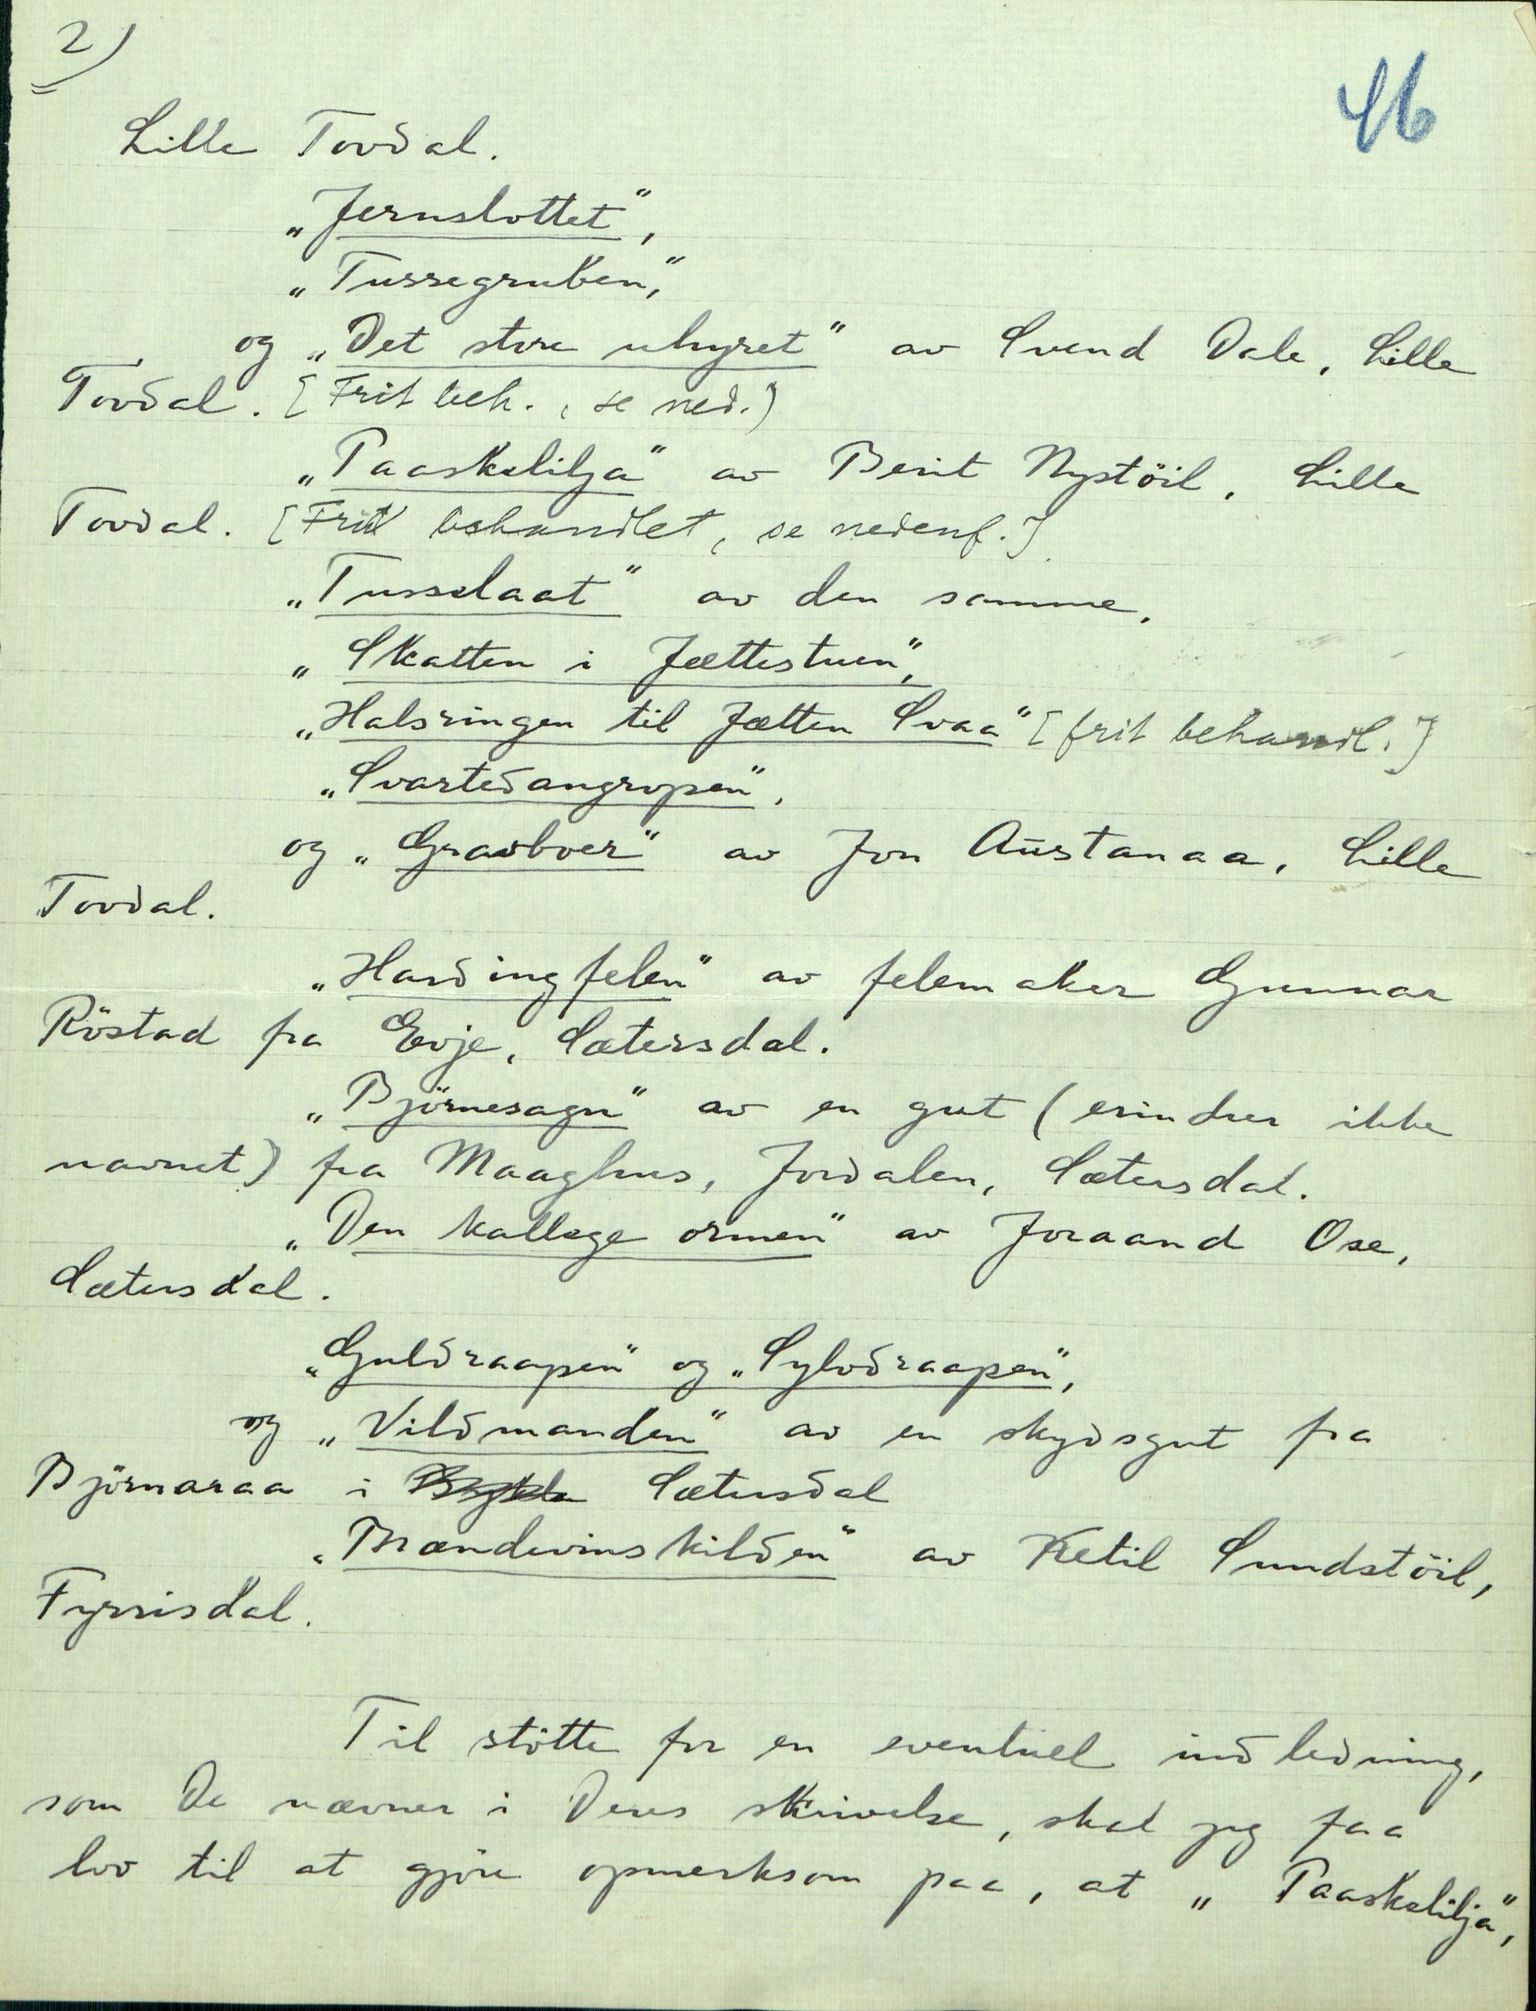 2)
46
Lille Tovdal.
„Jernslottet“,
„Tussegruben“,
og „Det store uhyret“ av Svend Dale, Lille
Tovdal. [Frit beh., se ned.)
„Paaskelilja“ av Berit Nystöil, Lille
Tovdal. [Frit behandlet, se nedenf.]
„Tusselaat“ av den samme.
„Skatten i Jættestuen“,
„Halsringen til Jætten Svaa“ [frit behandl.]
„Svartedangropen“,
og „Gravboer“ av Jon Austanaa, Lille
Tovdal.
„Hardingfelen“ av felemaker Gunnar
Röstad fra Evje, Sætersdal.
„Björnesagn“ av en gut (erindrer ikke
navnet) fra Maaghus, Jordalen, Sætersdal.
„Den kallege ormen“ av Joraand Ose,
Sætersdal.
„Guldraapen“ og „Sylvdraapen“,
og „Vildmanden“ av en skydsgut fra
Björnaraa i Sætersdal
„Brændevinskilden“ av Ketil Sundstöil,
Fyrrisdal.
Til stötte for en eventuel indledning,
som De nævner i Deres skrivelse, skal jeg faa
lov til at gjöre opmerksom paa, at „Paaskelilja“,